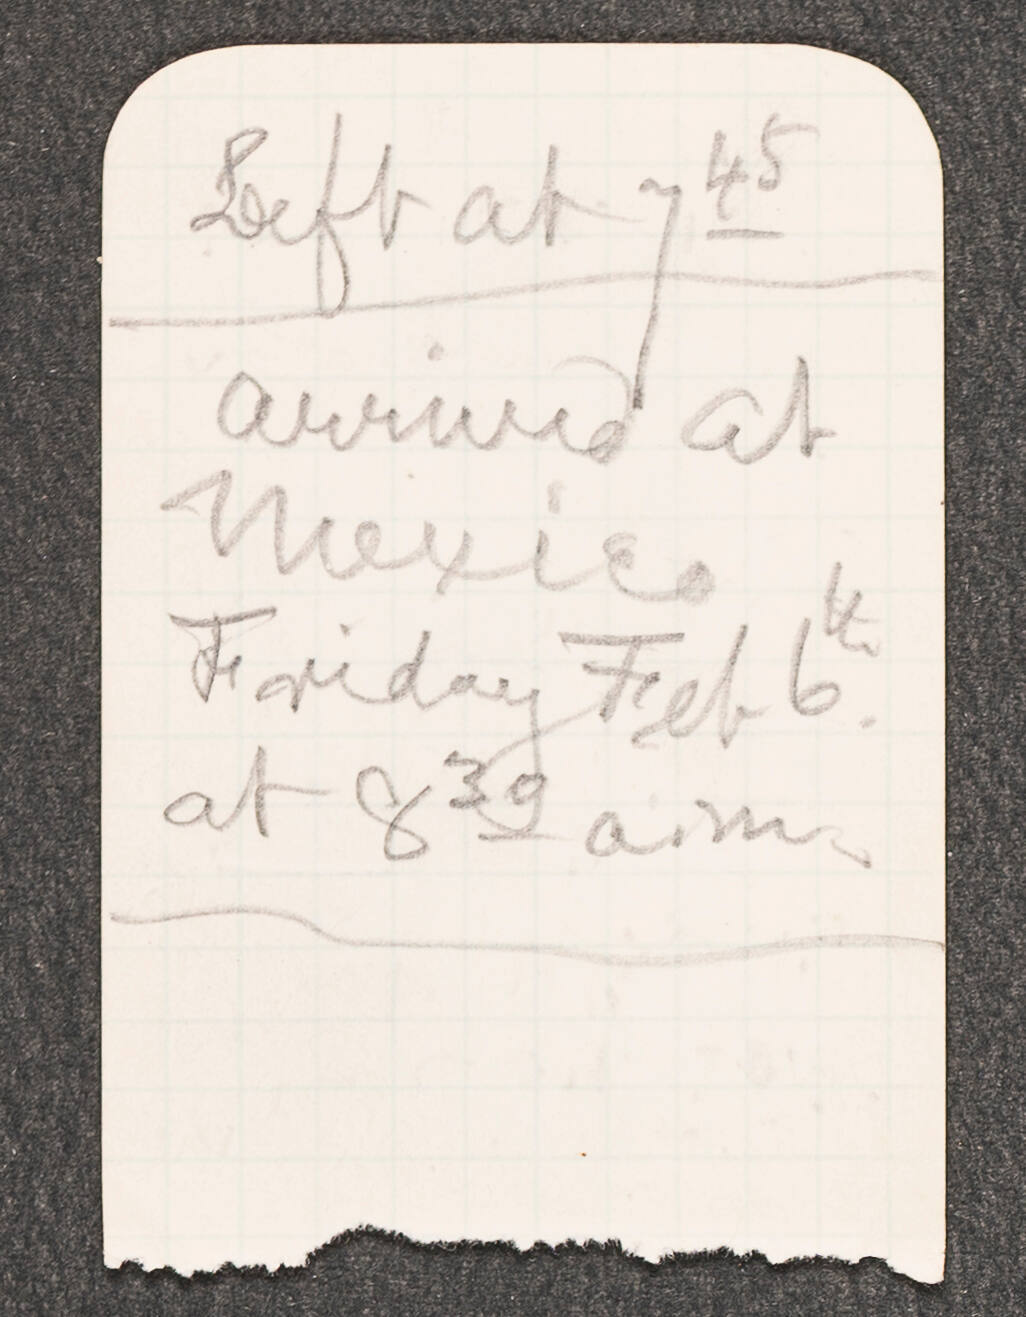 Left at 7 45
arrived at
Mexico
Friday Feb 6th.
at 8 30 a.m.